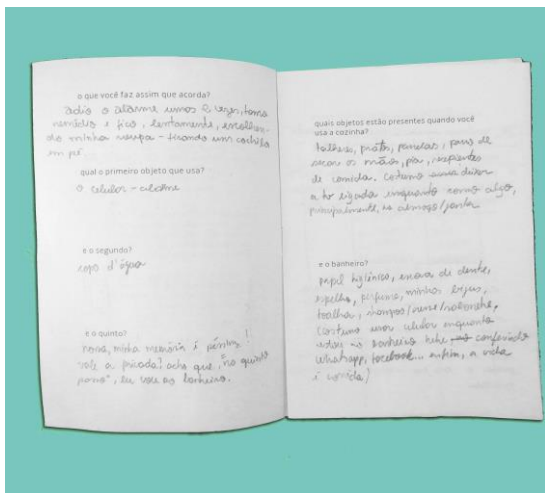 o que você faz assim que acorda?
adio o alarme umas 2 vezes, tomo
remédio e fico, lentamente, escolhen-
do minha roupa - ficando um cochilo
em pé.
qual o primeiro objeto que usa?
o celular - alarme
e o segundo?
copo d'água
e o quinto?
nossa, minha memória é péssima!
vale a privada? acho que, "no quinto
passo", eu vou ao banheiro.
quais objetos estão presentes quando você
usa a cozinha?
talheres, pratos, panelas, pano de
secar as mãos, pia, recipientes
de comida. Costumo deixar
a tv ligada enquanto como algo,
principalmente, no almoço/jantar
e o banheiro?
papel higiênico, escova de dente,
espelho, perfume, minhas
toalha, shampoo/creme/sabonete,
Costumo usar celular enquanto
estou no banheiro conferindo
whatsapp, facebook... enfim, a vida
é corrida!